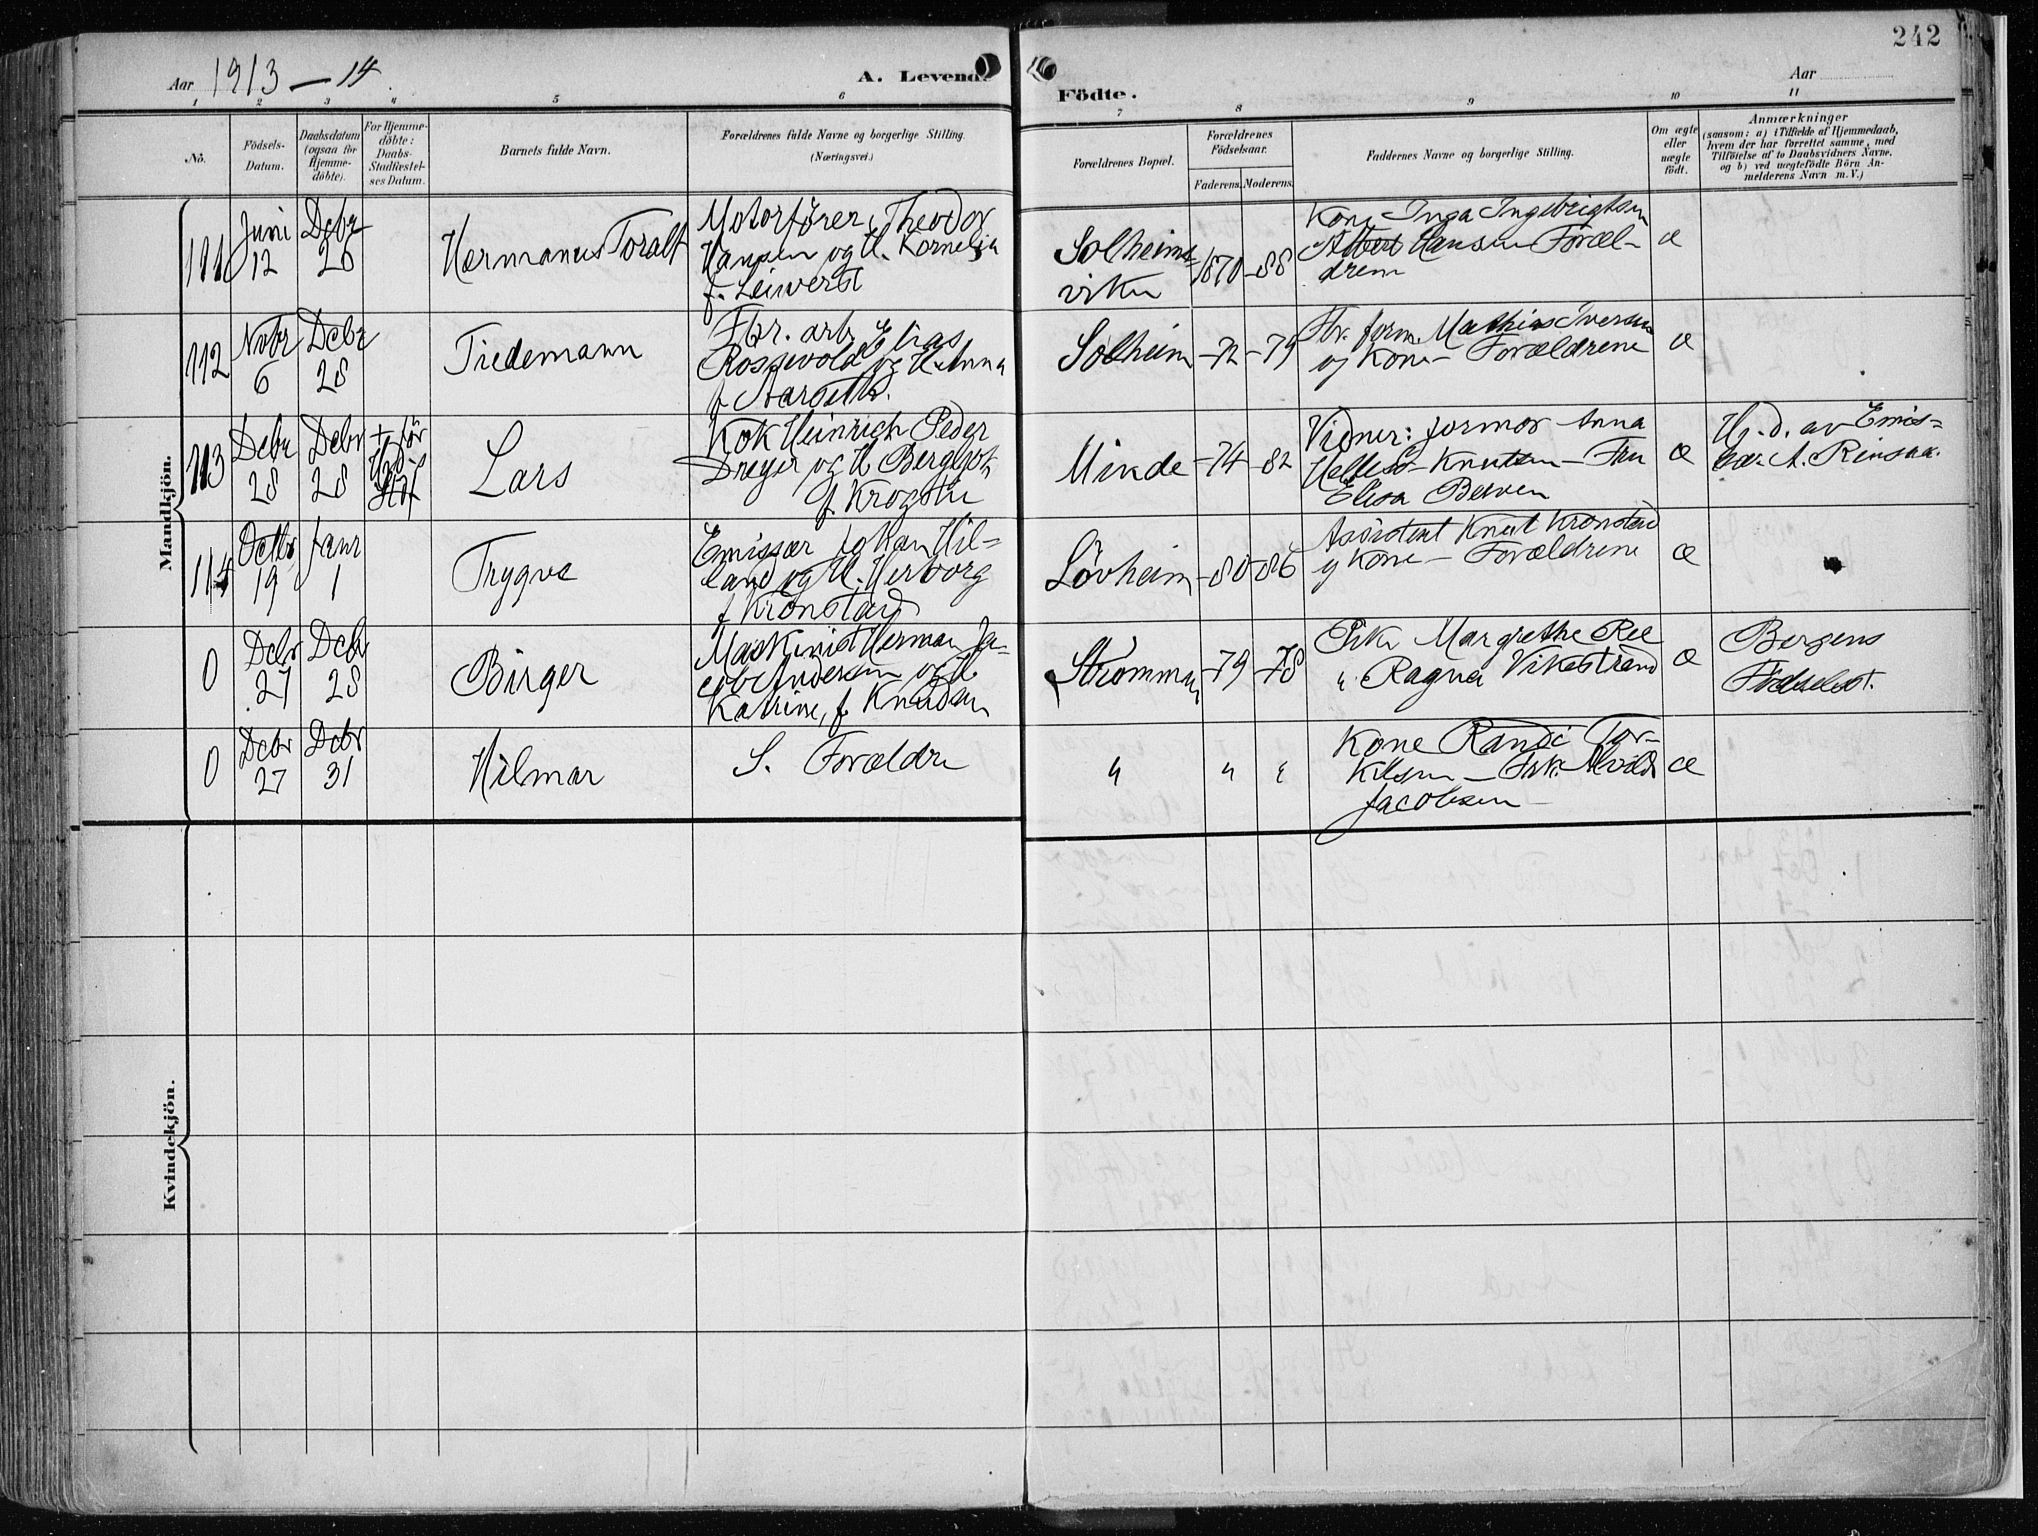 242
Aar 1913 — 14.
A. Levende
Födte.
Aar
1 2 3 4 5 6 7 8 9 10 11
No.
Födsels-
Datum.
Daabsdatum
(ogsaa for
Hjemme-
döbte).
For Hjemme-
döbte:
Daabs-
Stadfæstel-
ses Datum.
Barnets fulde Navn.
Forældrenes fulde Navne og borgerlige Stilling.
(Næringsvei.)
Forældrenes Bopæl.
Forældrenes
Födselsaar.
Faderens. Moderens.
Faddernes Navne og borgerlige Stilling.
Om ægte
eller
uægte
födt.
Anmærkninger
(saasom: a) i Tilfælde af Hjemmedaab,
hvem der har forrettet samme, med
Tilföielse af to Daabsvidners Navne,
og b) ved uegtefödte Börn An-
melderens Navn m.V.)
Mandkjön.
111
Juni
12
Dcbr
26
Hermanus Toralf
Motorfører Theodor
Hansen og H. Kornelia
f. Leiwerst
Solheims-
viken
1870 -88
Kone Inga Ingebrigtsen
Albert Hansen Foræl-
drene
æ
112
Nvbr
6
Dcbr
28
Tiedemann
Fbr. arb. Elias
Rossevold og H. Anna
f. Aarseth.
Solheim
-72 -79
Fbr. form. Mathias Iversen
og Kone - Forældrene
æ
113
Dcbr
28
Dcbr
28
+ før
Lars
Kok Heinrich Peder
Dreyer og H Bergljot
f. Krogstie
Minde
-74 -82
Vidner: jormor Anna
Knutsen - Fru
Elisa Berven
æ
Hj. d. av Emis-
sær. A. Rinsaa.
114
Octbr
19
Janr
1
Trygve
Emissær Johan Hil-
land og H. Herborg
f Kronstad
Lövheim
-80 -86
Assistent Knut Kronstad
og Kone - Forældrene
æ
0
Dcbr
27
Dcbr
28
Birger
Maskinist Herman Ja-
cob Andersen og H.
Katrine, f. Knudsen
Strömmen
-79 -78
Frk. Margrethe Ree
" Ragna Vikestrand
æ
Bergens
Födselsst.
0
Dcbr
27
Dcbr
31
Hilmar
S. Forældre
" " "
Kone Randi Tor-
kilsen - Frk. Alvild
Jacobsen
æ
Kvindekjön.